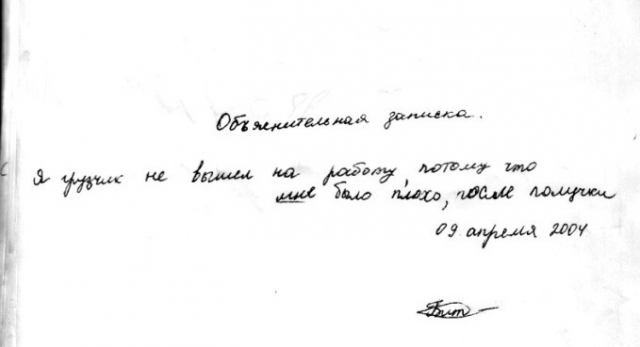 Объяснительная записка.
Я грузчик не вышел на работу, потому что
мне было плохо, после получки
09 апреля 2004